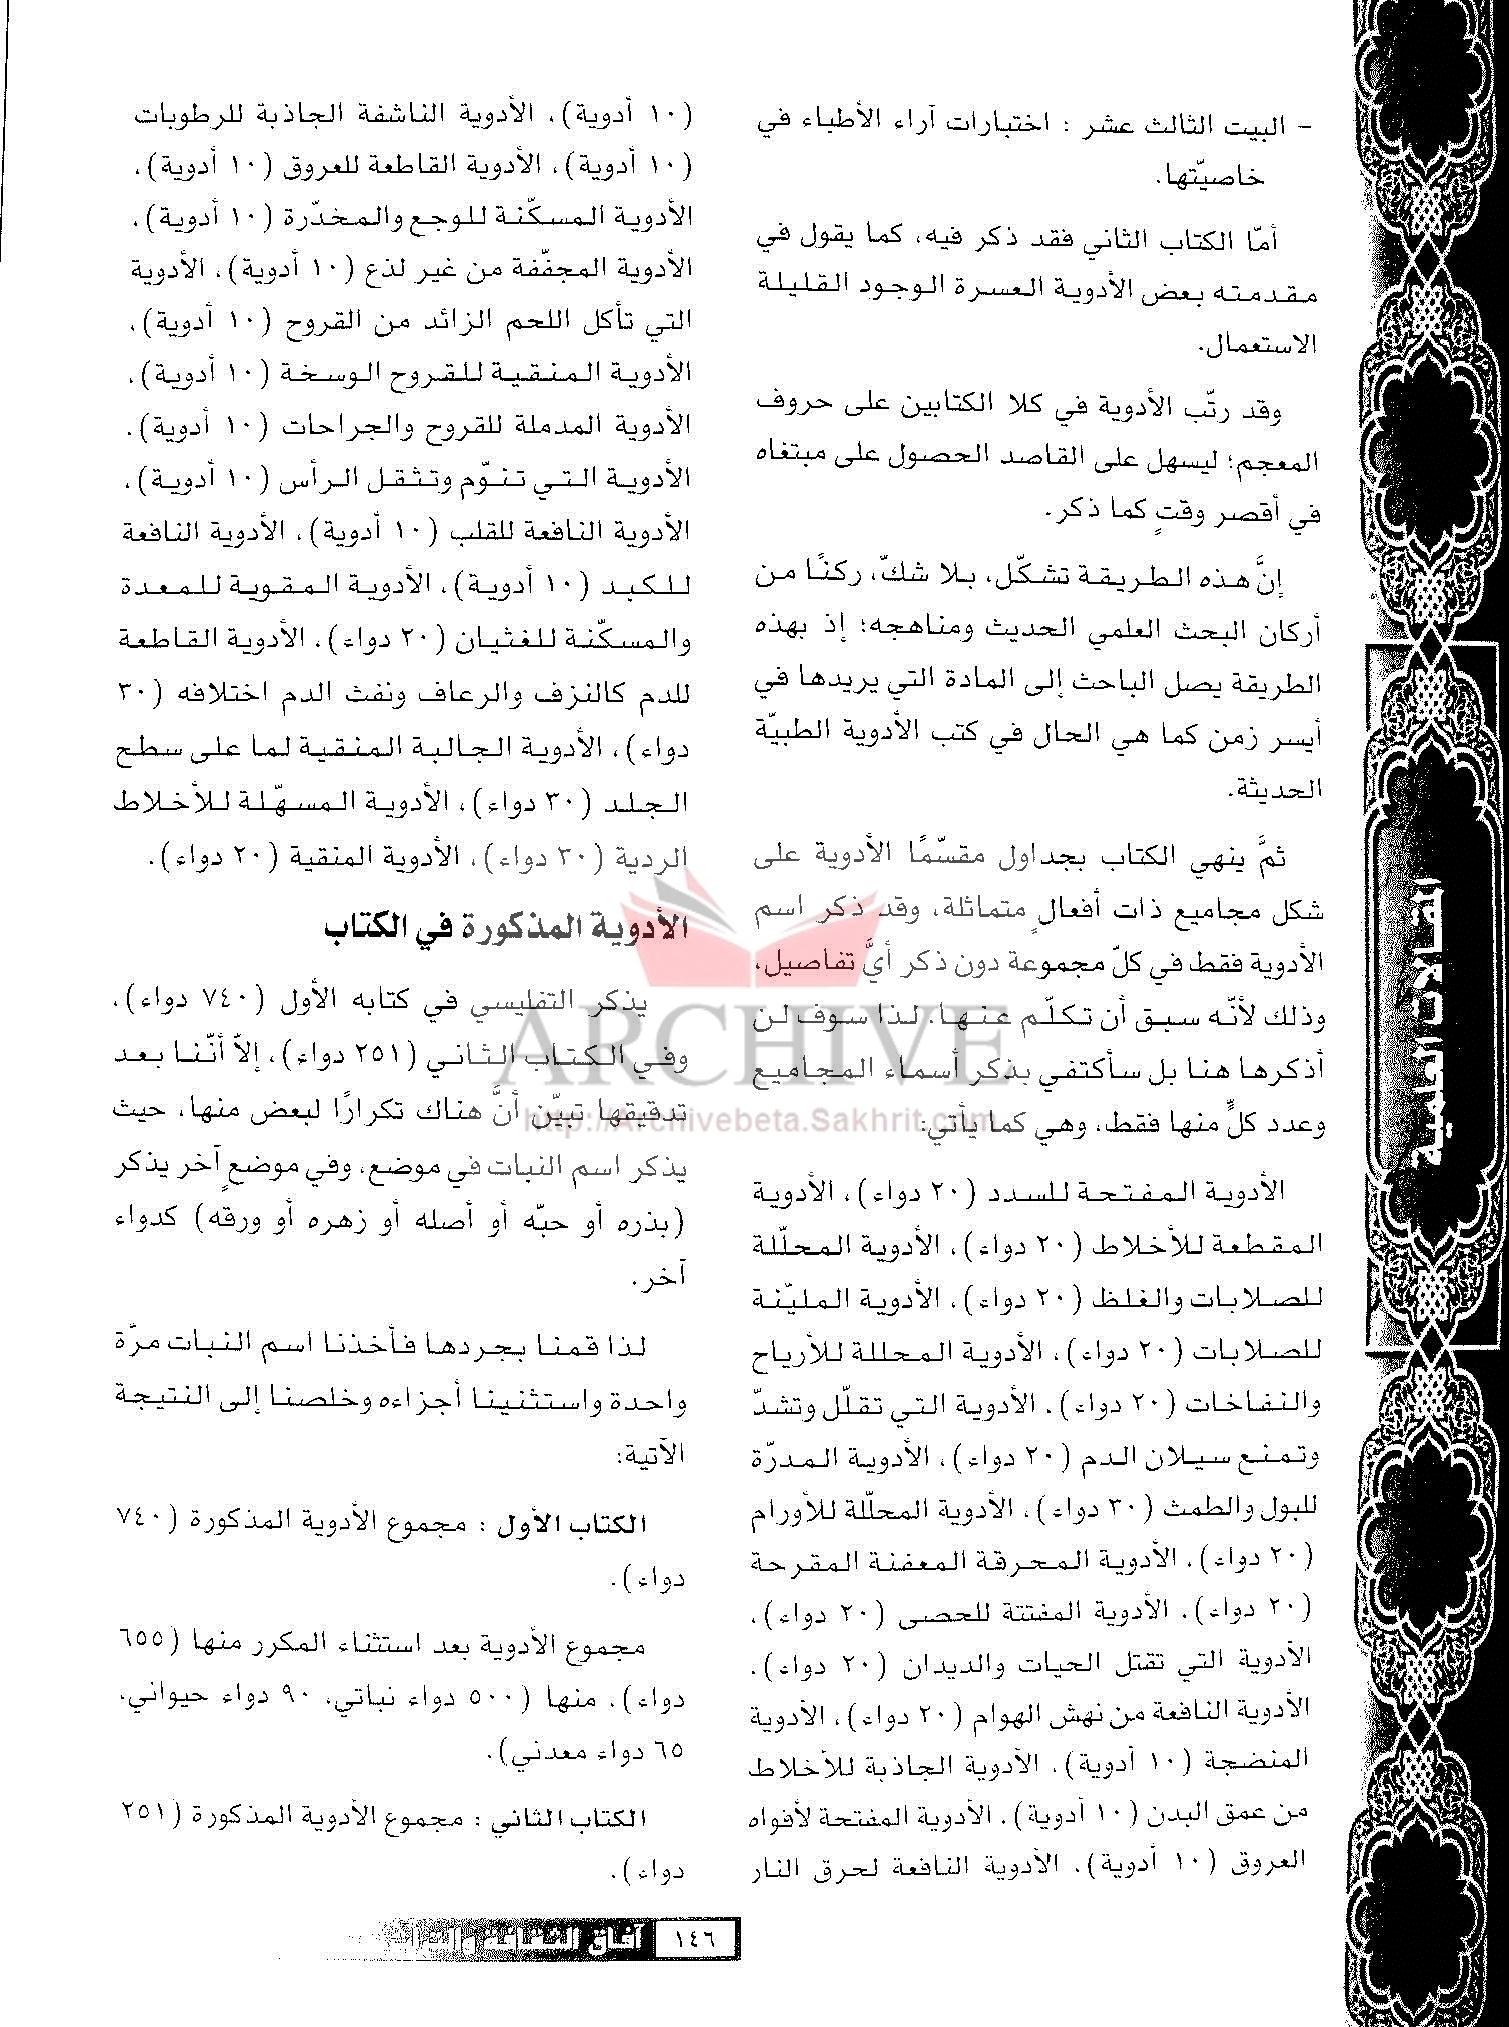 - البيت الثالث عشر : اختبارات آراء الأطباء في
خاصيّتها.
أمّا الكتاب الثاني فقد ذكر فيه، كما يقول في
مقدمته بعض الأدوية العسرة الوجود القليلة
الاستعمال.
وقد رتّب الأدوية في كلا الكتابين على حروف
المعجم؛ ليسهل على القاصد الحصول على مبتغاه
في أقصر وقتٍ كما ذكر.
إنَّ هذه الطريقة تشكّل، بلا شكّ، ركنًا من
أركان البحث العلمي الحديث ومناهجه؛ إذ بهذه
الطريقة يصل الباحث إلى المادة التي يريدها في
أيسر زمن كما هي الحال في كتب الأدوية الطبيّة
الحديثة.
ثمَّ ينهي الكتاب بجداول مقسّمًا الأدوية على
شكل مجاميع ذات أفعالٍ متماثلة، وقد ذكر اسم
الأدوية فقط في كلّ مجموعة دون ذكر أيَّ تفاصيل،
وذلك لأنّه سبق أن تكلّم عنها. لذا سوف لن
أذكرها هنا بل سأكتفي بذكر أسماء المجاميع
وعدد كلٍّ منها فقط، وهي كما يأتي:
الأدوية المفتحة للسدد (٢٠ دواء)، الأدوية
المقطعة للأخلاط (٢٠ دواء)، الأدوية المحلّلة
للصلابات والغلظ (٢٠ دواء)، الأدوية المليّنة
للصلابات (٢٠ دواء)، الأدوية المحللة للأرياح
والنفاخات (٢٠ دواء)، الأدوية التي تقلّل وتشدّ
وتمنع سيلان الدم (٢٠ دواء)، الأدوية المدرّة
للبول والطمث (٣٠ دواء)، الأدوية المحلّلة للأورام
(٢٠ دواء)، الأدوية المحرقة المعفنة المقرحة
(٢٠ دواء)، الأدوية المفتتة للحصى (٢٠ دواء)،
الأدوية التي تقتل الحيات والديدان (٢٠ دواء)،
الأدوية النافعة من نهش الهوام (٢٠ دواء)، الأدوية
المنضجة (١٠ أدوية)، الأدوية الجاذبة للأخلاط
من عمق البدن (١٠ أدوية)، الأدوية المفتحة لأفواه
العروق (١٠ أدوية)، الأدوية النافعة لحرق النار
(١٠ أدوية)، الأدوية الناشفة الجاذبة للرطوبات
(١٠ أدوية)، الأدوية القاطعة للعروق (١٠ أدوية)،
الأدوية المسكّنة للوجع والمخدّرة (١٠ أدوية)،
الأدوية المجفّفة من غير لذع (١٠ أدوية)، الأدوية
التي تأكل اللحم الزائد من القروح (١٠ أدوية)،
الأدوية المنقية للقروح الوسخة (١٠ أدوية)،
الأدوية المدملة للقروح والجراحات (١٠ أدوية)،
الأدوية التي تنوّم وتثقل الرأس (١٠ أدوية)،
الأدوية النافعة للقلب (١٠ أدوية)، الأدوية النافعة
للكبد (١٠ أدوية)، الأدوية المقوية للمعدة
والمسكّنة للغثيان (٢٠ دواء)، الأدوية القاطعة
للدم كالنزف والرعاف ونفث الدم اختلافه (٣٠
دواء)، الأدوية الجالبة المنقية لما على سطح
الجلد (٣٠ دواء)، الأدوية المسهّلة للأخلاط
الردية (٣٠ دواء)، الأدوية المنقية (٢٠ دواء).
الأدوية المذكورة في الكتاب
يذكر التفليسي في كتابه الأول (٧٤٠ دواء)،
وفي الكتاب الثاني (٢٥١ دواء)، إلاّ أنّنا بعد
تدقيقها تبيّن أنَّ هناك تكرارًا لبعض منها، حيث
يذكر اسم النبات في موضع، وفي موضعٍ آخر يذكر
(بذره أو حبّه أو أصله أو زهره أو ورقه) كدواء
آخر.
لذا قمنا بجردها فأخذنا اسم النبات مرّة
واحدة واستثنينا أجزاءه وخلصنا إلى النتيجة
الآتية:
الكتاب الأول : مجموع الأدوية المذكورة (٧٤٠
دواء).
مجموع الأدوية بعد استثناء المكرر منها (٦٥٥
دواء)، منها (٥٠٠ دواء نباتي، ٩٠ دواء حيواني،
٦٥ دواء معدني).
الكتاب الثاني : مجموع الأدوية المذكورة (٢٥١
دواء).
المقالات العلمية
ARCHIVE
http://Archivebeta.Sakhrit.com
١٤٦ آفاق الثقافة والتراث